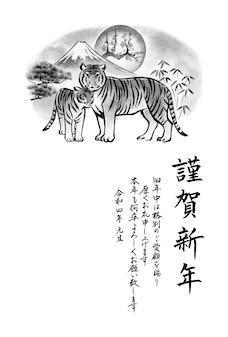 謹賀新年
旧年中は格別のご愛顧を賜り
厚くお礼申し上げます
本年も何卒よろしくお願い致します
令和四年 元旦